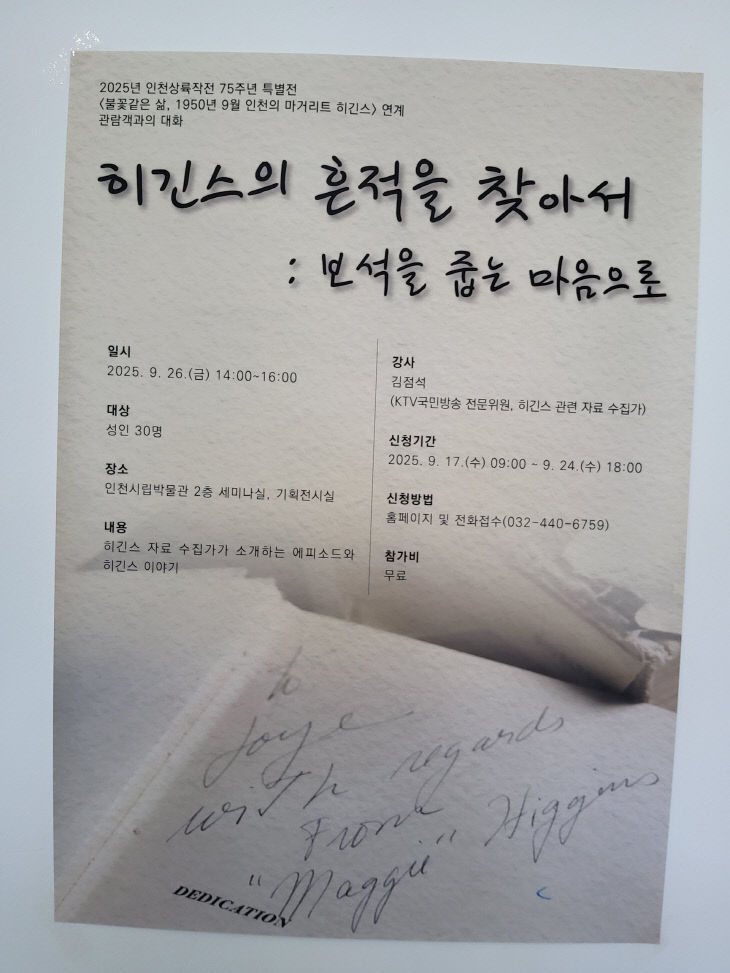 2025년 인천상륙작전 75주년 특별전
<불꽃같은 삶, 1950년 9월 인천의 마거리트 히긴스> 연계
관람객과의 대화
히긴스의 흔적을 찾아서
: 보석을 줍는 마음으로
일시
2025. 9. 26.(금) 14:00~16:00
대상
성인 30명
장소
인천시립박물관 2층 세미나실, 기획전시실
내용
히긴스 자료 수집가가 소개하는 에피소드와
히긴스 이야기
강사
김점석
(KTV국민방송 전문위원, 히긴스 관련 자료 수집가)
신청기간
2025. 9. 17.(수) 09:00 ~ 9. 24.(수) 18:00
신청방법
홈페이지 및 전화접수(032-440-6759)
참가비
무료
to
Joye
with regards
From
"Maggie" Higgins
DEDICATION